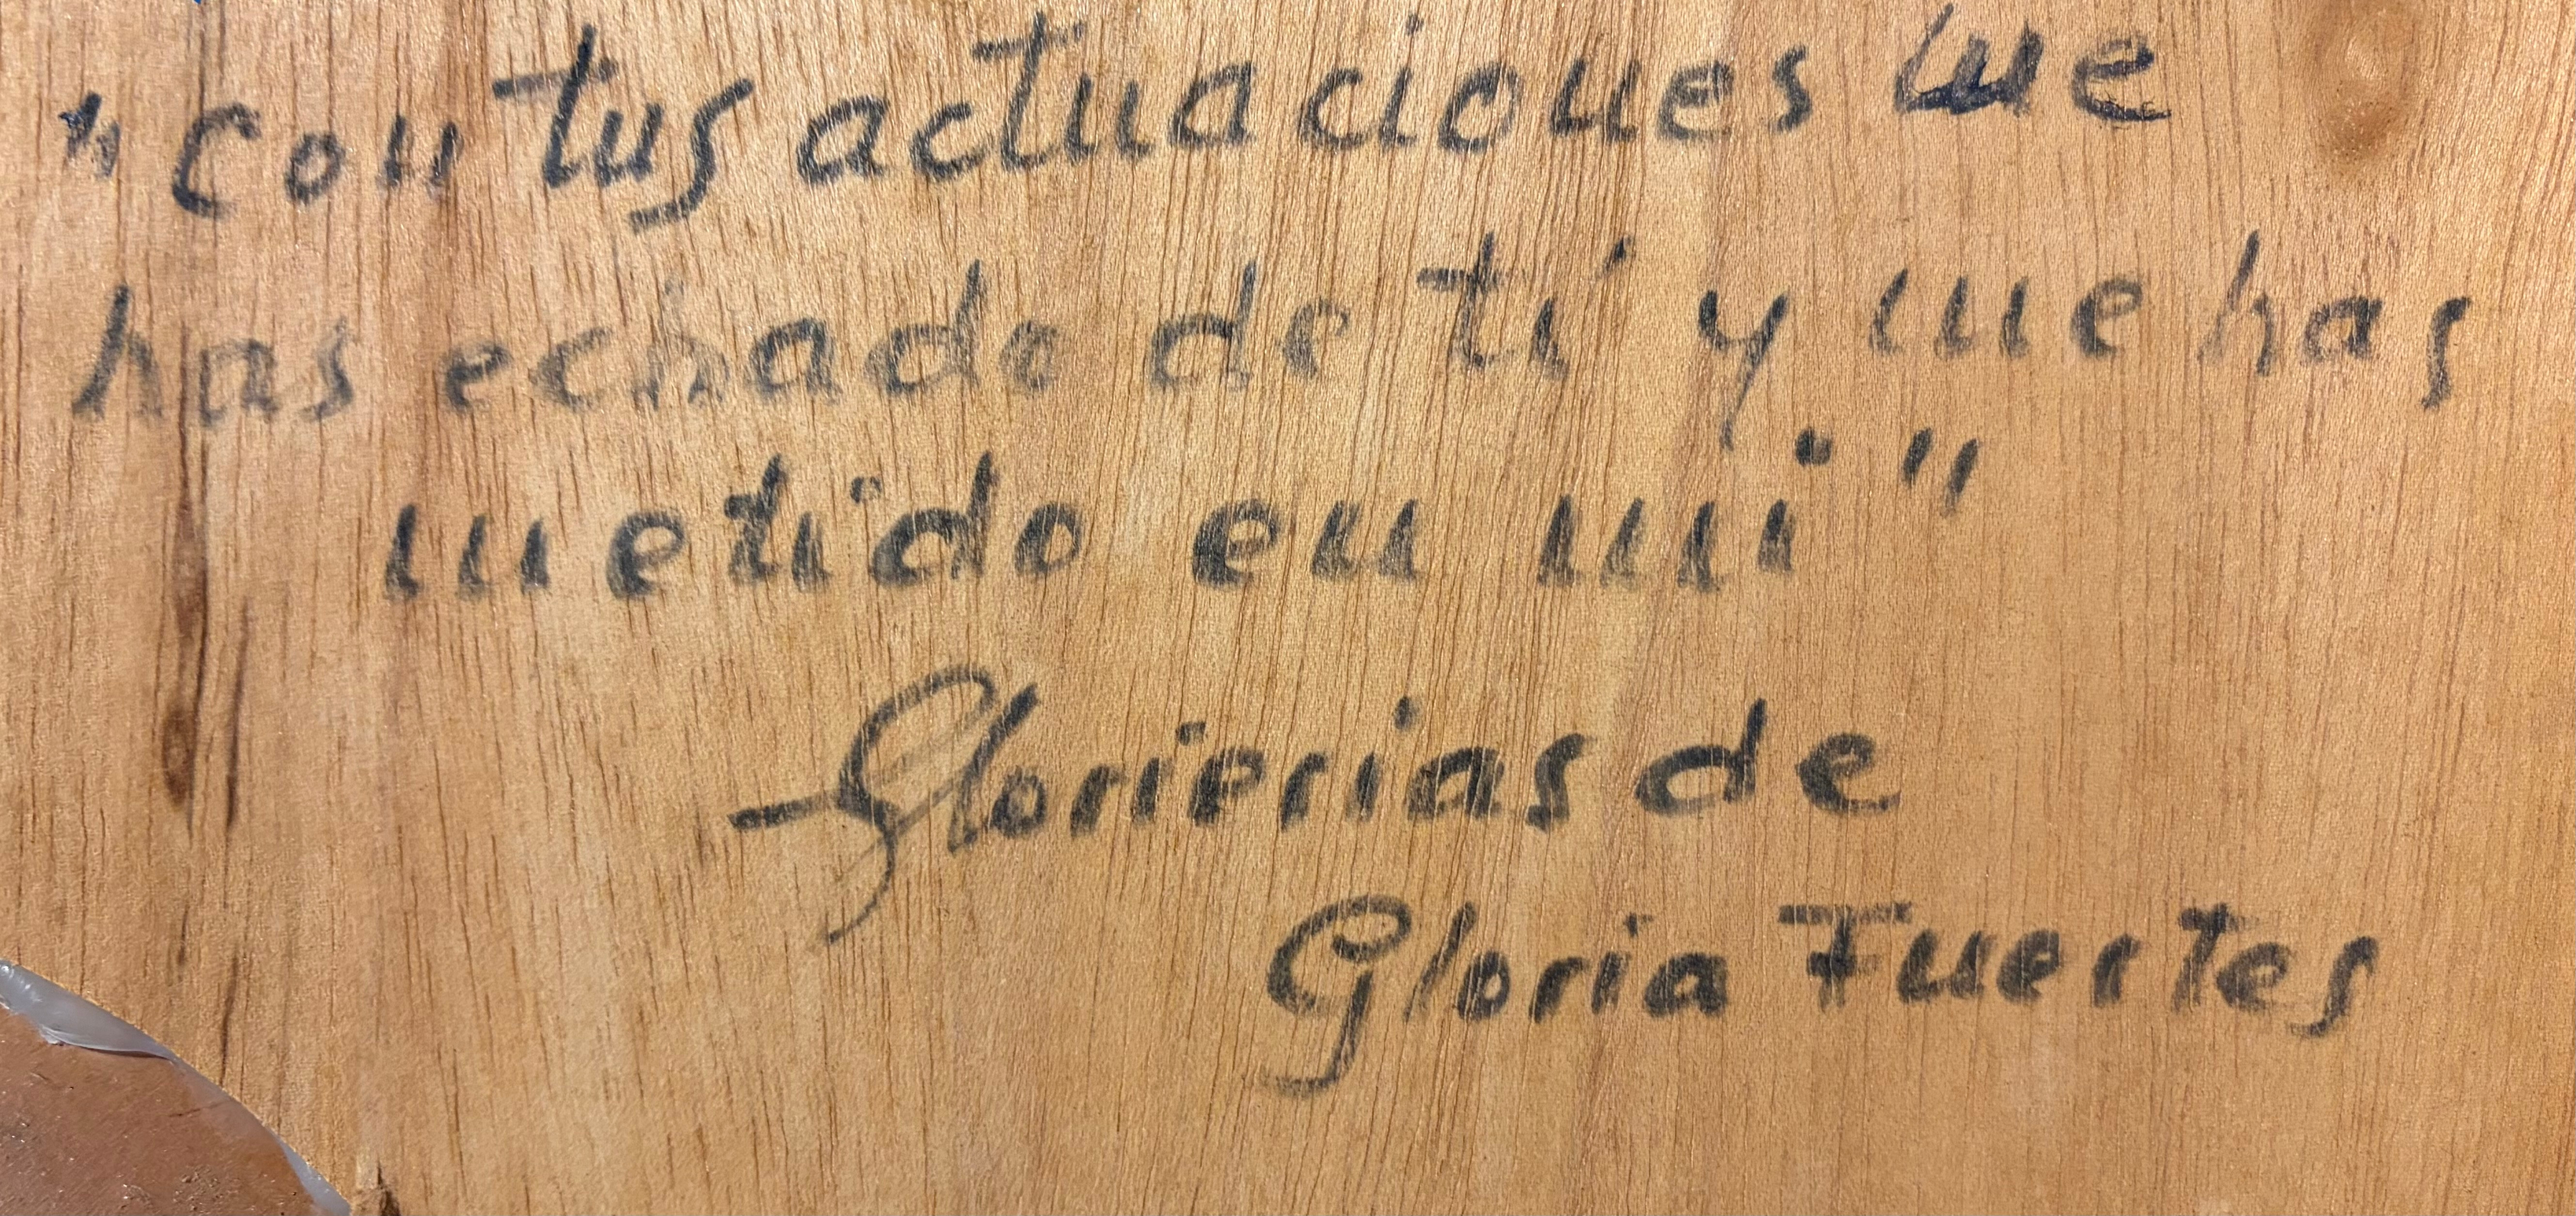 "Con tus actuaciones me
has echado de tí y me has
metido en mi"
Glorierias de
Gloria Fuertes